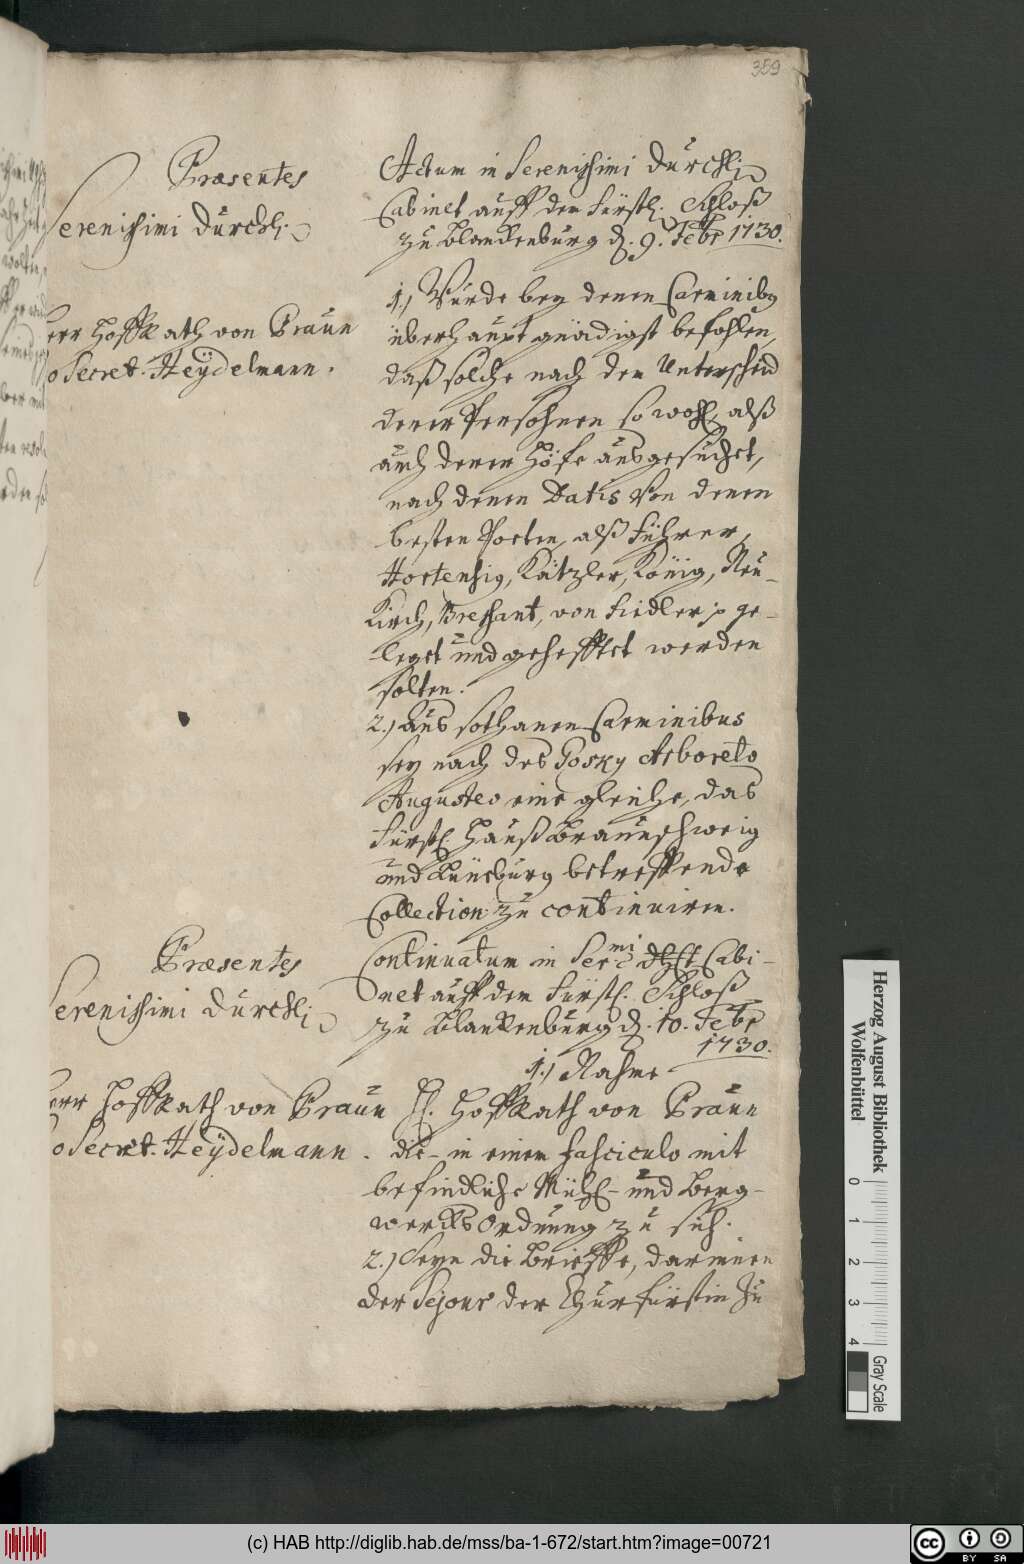 359
Præsentes
Serenissimi Durchl.
Herr Hoffrath von Praun
Secret. Heÿdelmann.
Actum in Serenissimi Durchl.
Cabinet auff dem Fürstl. Schloß
zu Blanckenburg d. 9. Febr 1730.
1.) Wurde bey denen Carminibq
überhaupt gnädigst befohlen,
daß solche nach dem Unterscheid
derer Persohnen so wohl, alß
auch derer Höfe ausgesuchet,
nach denen Datis von denen
besten Poeten, alß Führer,
Hortensig, Kätzler, König, Neu-
Kirch, Bressant, von Fiedler p ge-
leget und gehefftet werden
solten.
2.) Aus sothanen Carminibus
sey nach des Gosky Arboreto
Augusteo eine gleiche, das
Fürstl. Hauß Braunschweig
und Lüneburg betreffende
Collection zu continuiren.
Præsentes
Serenissimi Durchl.
Herr Hoffrath von Praun
Secret. Heÿdelmann.
Continuatum in Sermi Cabi-
net auff dem Fürstl. Schloß
zu Blanckenburg d. 10. Febr
1730.
1.) Nahme
H. Hoffrath von Praun
die- in einem fasciculo mit
befindliche Müntz- und Berg-
wercks Ordnung zu sich.
2.) Seyn die Brieffe, darinnen
der Sejour der Churfürstin zu
Herzog August Bibliothek
Wolfenbüttel
0 1 2 3 4
Gray Scale
(c) HAB http://diglib.hab.de/mss/ba-1-672/start.htm?image=00721
cc BY SA